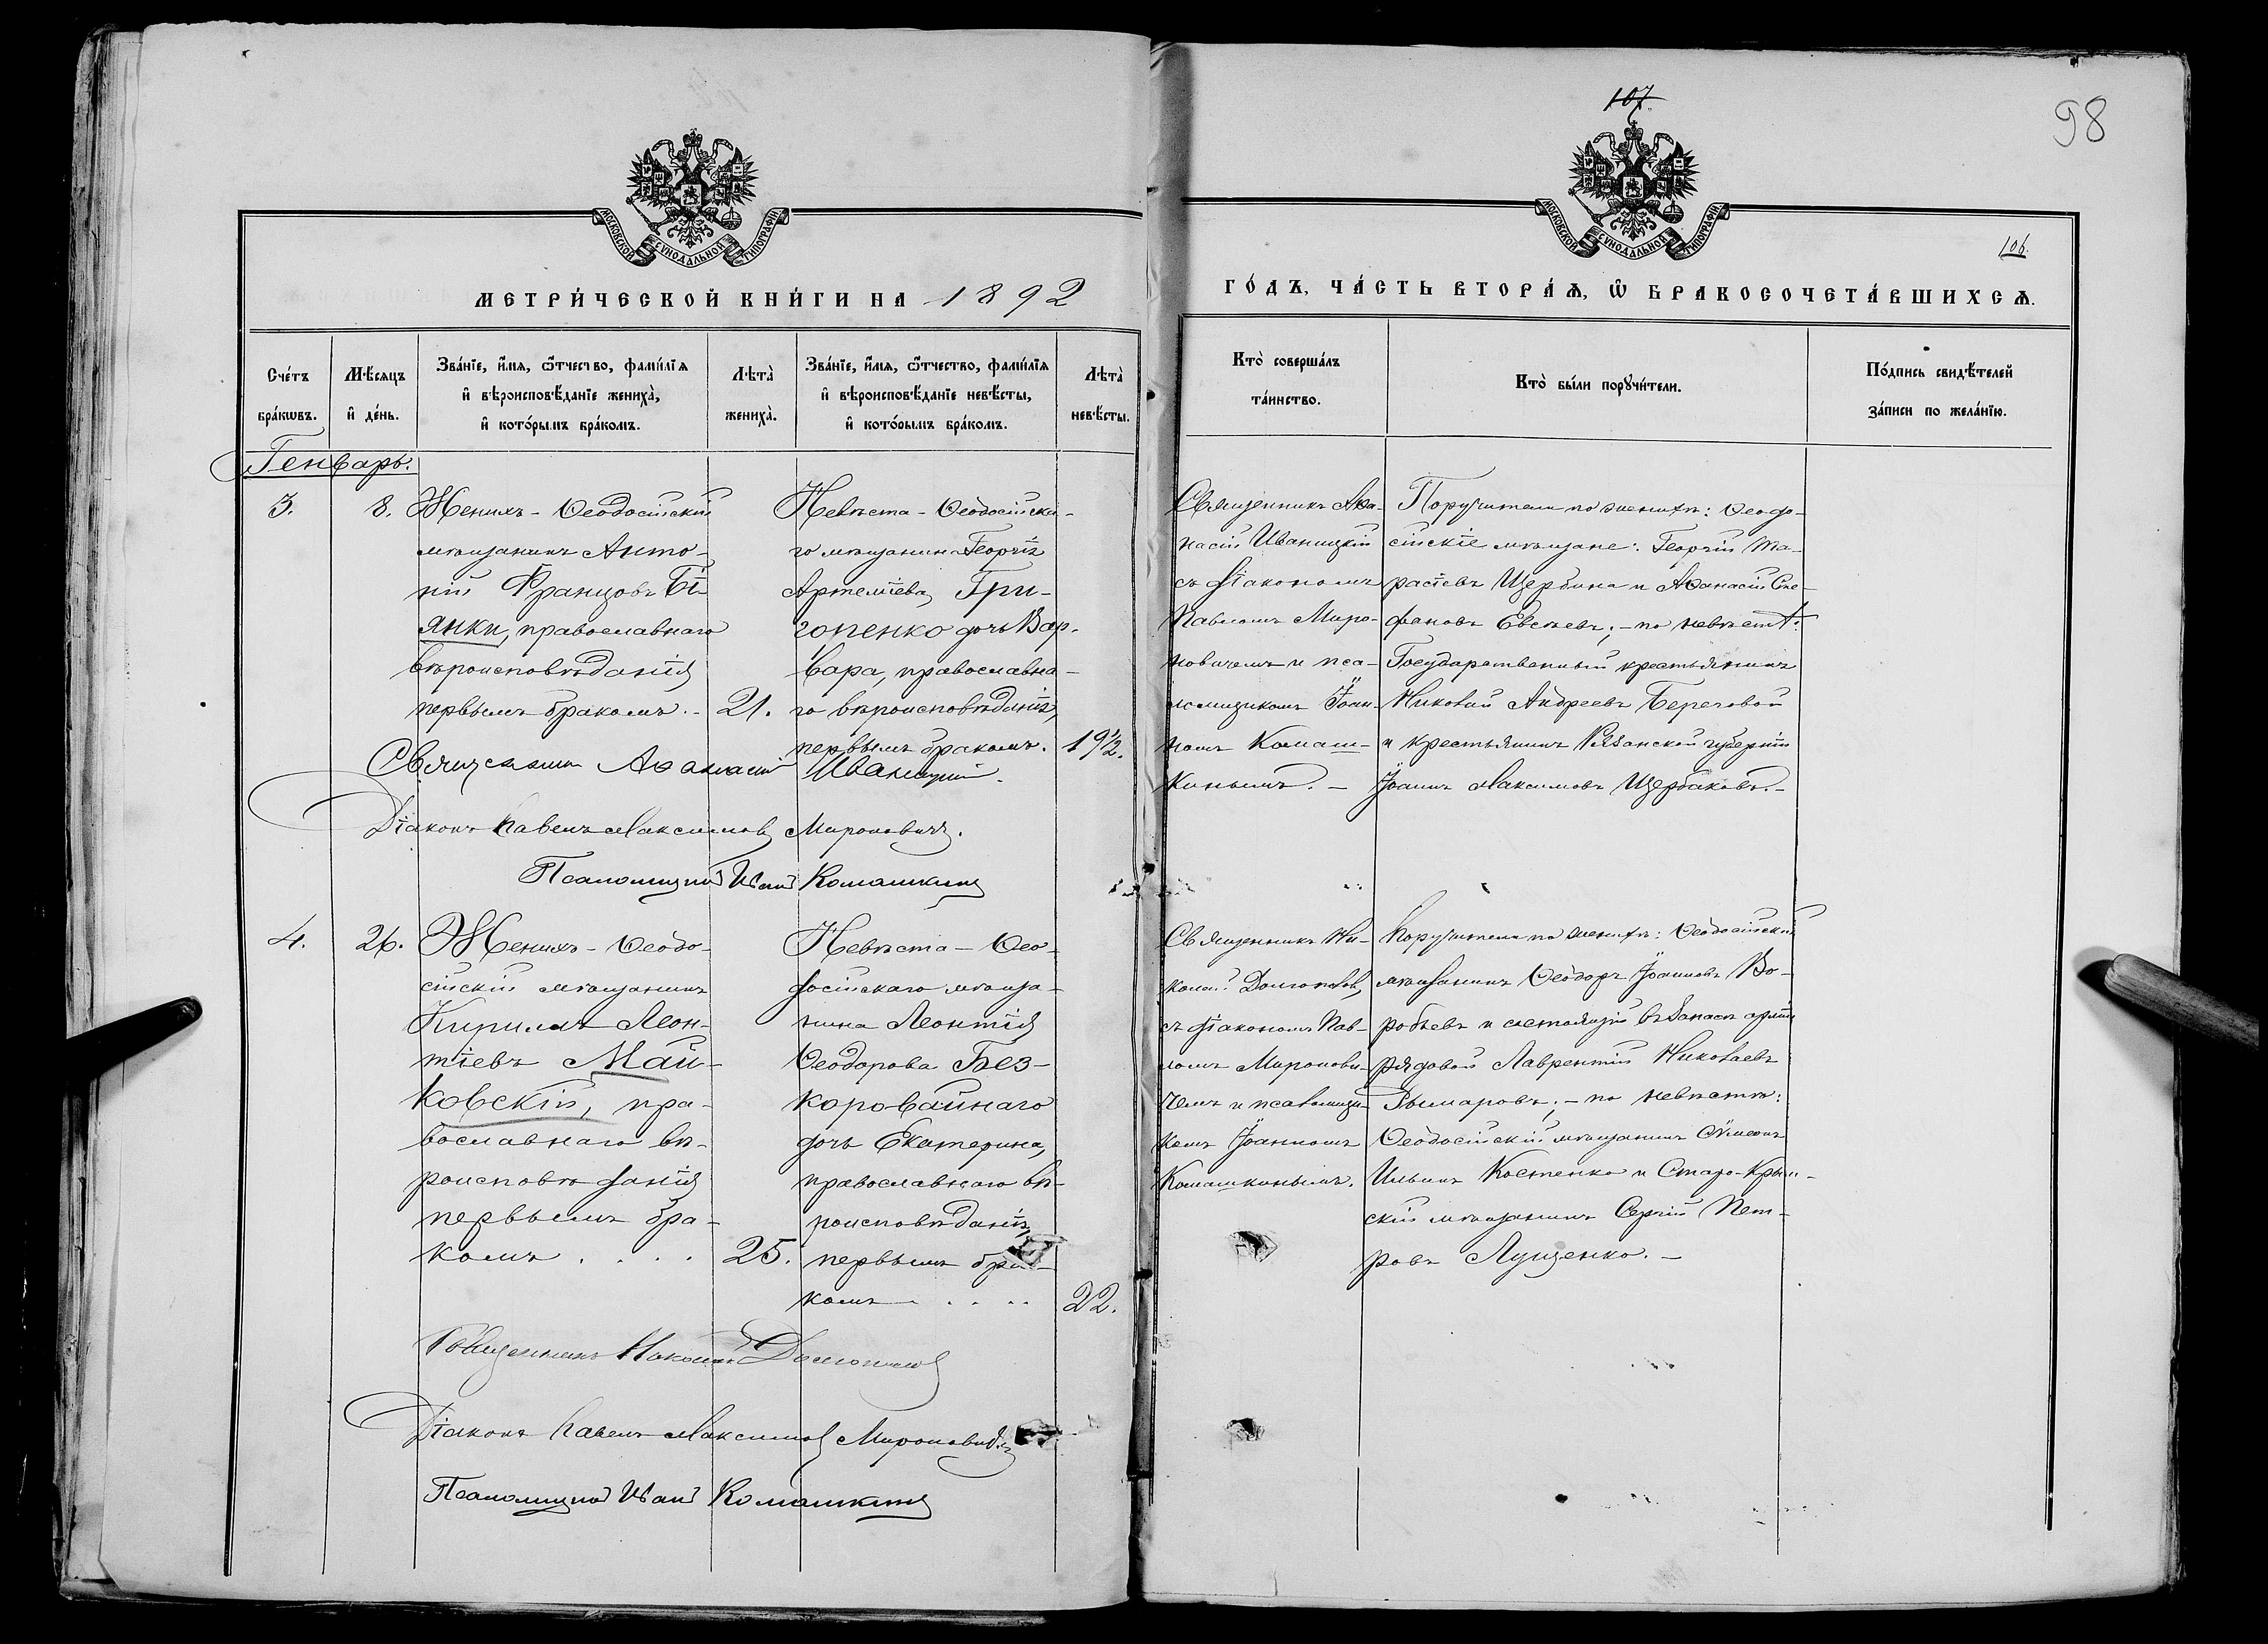 107.
98
МОСКОВСКОЙ СѴНОДАЛЬНОЙ ТИПОГРАФІИ
МОСКОВСКОЙ СѴНОДАЛЬНОЙ ТИПОГРАФІИ
106.
МЕТРИ́ЧЕСКОЙ КНИ́ГИ НА 1892
ГО́ДЪ, ЧА́СТЬ ВТОРА́Ѧ, Ѡ҆ БРАКОСОЧЕТА́ВШИХСѦ.
Сче́тъ
бра́кѡвъ.
Мѣ́сяцъ
и҆ де́нь.
Зва́нїе, и҆́мя, ѻ҆́тчество, фами́лїя
и҆ вѣроисповѣ́данїе жениха̀,
и҆ кото́рымъ бра́комъ.
Лѣта̀
жениха̀.
Зва́нїе, и҆́мя, ѻ҆́тчество, фами́лїя
и҆ вѣроисповѣ́данїе невѣ́сты,
и҆ кото́рымъ бра́комъ.
Лѣта̀
невѣ́сты.
Кто̀ соверша́лъ
та́инство.
Кто̀ бы́ли порꙋчи́тели.
По́дпись свидѣ́телей
за́писи по жела́нїю.
Генварь.
3.
8.
Женихъ - Ѳеодосійскій
мѣщанинъ Анто-
ній Францовъ Бі-
янки, православнаго
вѣроисповѣданія
первымъ бракомъ. -
21.
Невѣста - Ѳеодосійска-
го мѣщанина Георгія
Артеміева Гри-
гоненко дочь Вар-
вара, православна-
го вѣроисповѣданія,
первымъ бракомъ.
19½.
Священникъ Аѳа-
насій Иваницкій
съ діакономъ
Павломъ Миро-
новичемъ и пса-
ломщикомъ Іоан-
номъ Комаш-
кинымъ. -
Поручители по женихѣ: Ѳеодо-
сійскіе мѣщане: Георгій Та-
расіевъ Щербина и Аѳанасій Сте-
фановъ Евсѣевъ; - по невѣстѣ:
Государственный крестьянинъ
Николай Андреевъ Береговой
и крестьянинъ Рязанской губерніи
Іоаннъ Максимовъ Щербаковъ. -
Священникъ Аѳанасій Иваницкій.
Діаконъ Павелъ Максимовъ Мироновичъ.
Псаломщикъ Иванъ Комашкинъ
4.
26.
Женихъ - Ѳеодо-
сійскій мѣщанинъ
Кириллъ Леон-
тіевъ Май-
ковскій, пра-
вославнаго вѣ-
роисповѣданія
первымъ бра-
комъ . . . .
25.
Невѣста - Ѳео-
досійскаго мѣща-
нина Леонтія
Ѳеодорова Без-
коровайнаго
дочь Екатерина,
православнаго вѣ-
роисповѣданія,
первымъ бра-
комъ . . . .
22.
Священникъ Ни-
колай Долгополовъ,
съ діакономъ Пав-
ломъ Миронови-
чемъ и псаломщи-
комъ Іоанномъ
Комашкинымъ.
Поручители по женихѣ: Ѳеодосійскій
мѣщанинъ Ѳеодоръ Іоанновъ Во-
робьевъ и состоящій въ запасѣ арміи
рядовой Лаврентій Николаевъ
Рымаровъ; - по невѣстѣ:
Ѳеодосійскій мѣщанинъ Сѵмеонъ
Ильинъ Костенко и Старо-Крым-
скій мѣщанинъ Сергій Пет-
ровъ Лущенко. -
Священникъ Николай Долгополовъ
Діаконъ Павелъ Максимовъ Мироновичъ
Псаломщикъ Иванъ Комашкинъ